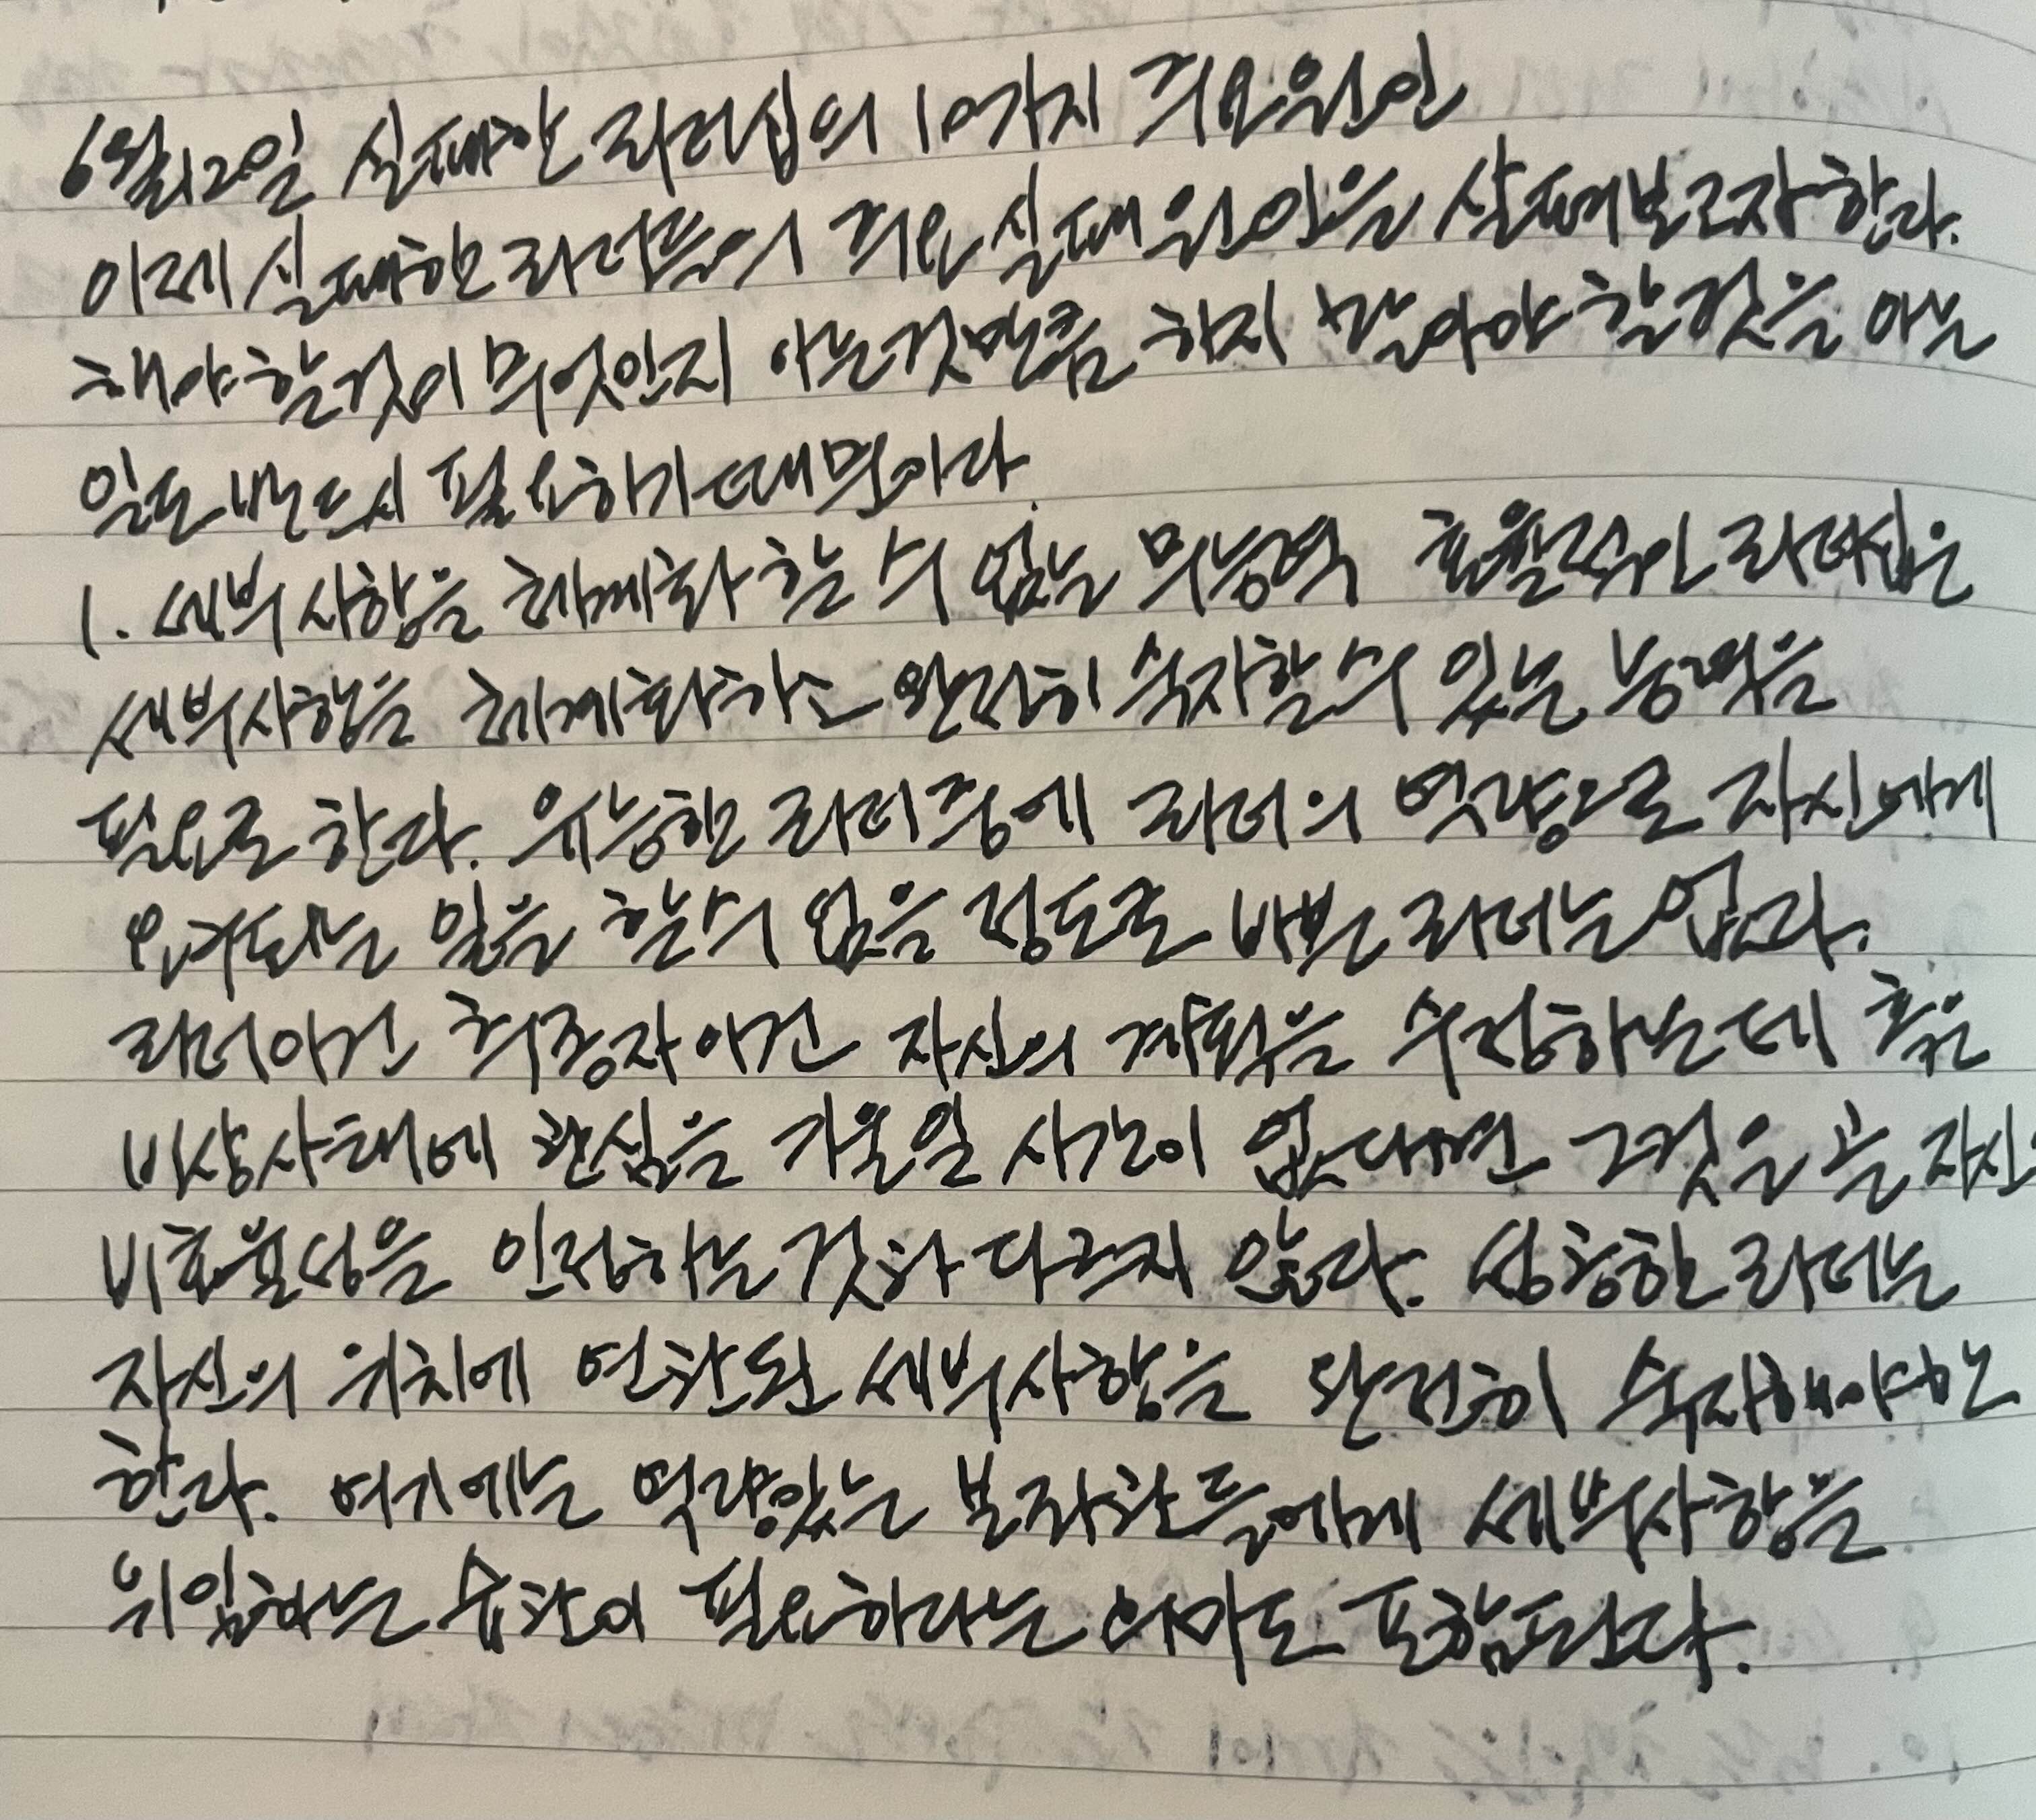 6월12일 실패한 리더십의 10가지 주요원인
이제 실패한 리더들의 주요 실패 원인을 살펴보고자 한다.
해야 할것이 무엇인지 아는것만큼 하지 말아야 할것을 아는
일도 반드시 필요하기 때문이다.
1. 세부사항을 체계화 할 수 없는 무능력 효율적인 리더십은
세부사항을 체계화하고 완전히 숙지할 수 있는 능력을
필요로 한다. 유능한 리더중에 리더의 역량으로 자신에게
요구되는 일을 할 수 없을 정도로 바쁜 리더는 없다.
리더이건 추종자이건 자신의 계획을 수정하는데 혹은
비상사태에 관심을 기울일 시간이 없다면 그것은 곧 자신
비효율성을 인정하는 것과 다르지 않다. 성공한 리더는
자신의 위치에 연관된 세부사항을 완전히 숙지해야만
한다. 여기에는 역량있는 보좌관들에게 세부사항을
위임하는 습관이 필요하다는 의미도 포함된다.